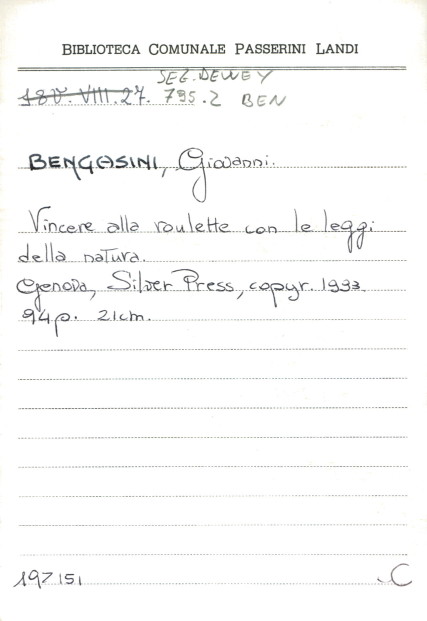 BIBLIOTECA COMUNALE PASSERINI LANDI
SEZ. DEWEY
180. VIII. 27. 795.2 BEN
BENGASINI, Giovanni.
Vincere alla roulette con le leggi
della natura.
Genova, Silver Press, copyr. 1993.
94p. 21cm.
197151 C